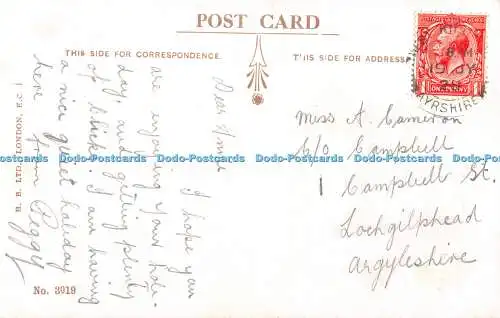 POST CARD
THIS SIDE FOR CORRESPONDENCE.
T'IIS SIDE FOR ADDRESS
Dear
I hope you
are enjoying your holi-
day, and getting plenty
of
I am having
a nice quiet holiday
here from Peggy
B. B. LTD. LONDON, E.C.
No. 3919
ONE PENNY
AYRSHIRE
Miss A. Cameron
C/o Campbell
1 Campbell St.
Lochgilphead
Argyleshire
Dodo-Postcards Dodo-Postcards Dodo-Postcards Dodo-Postcards Dodo-Postcards